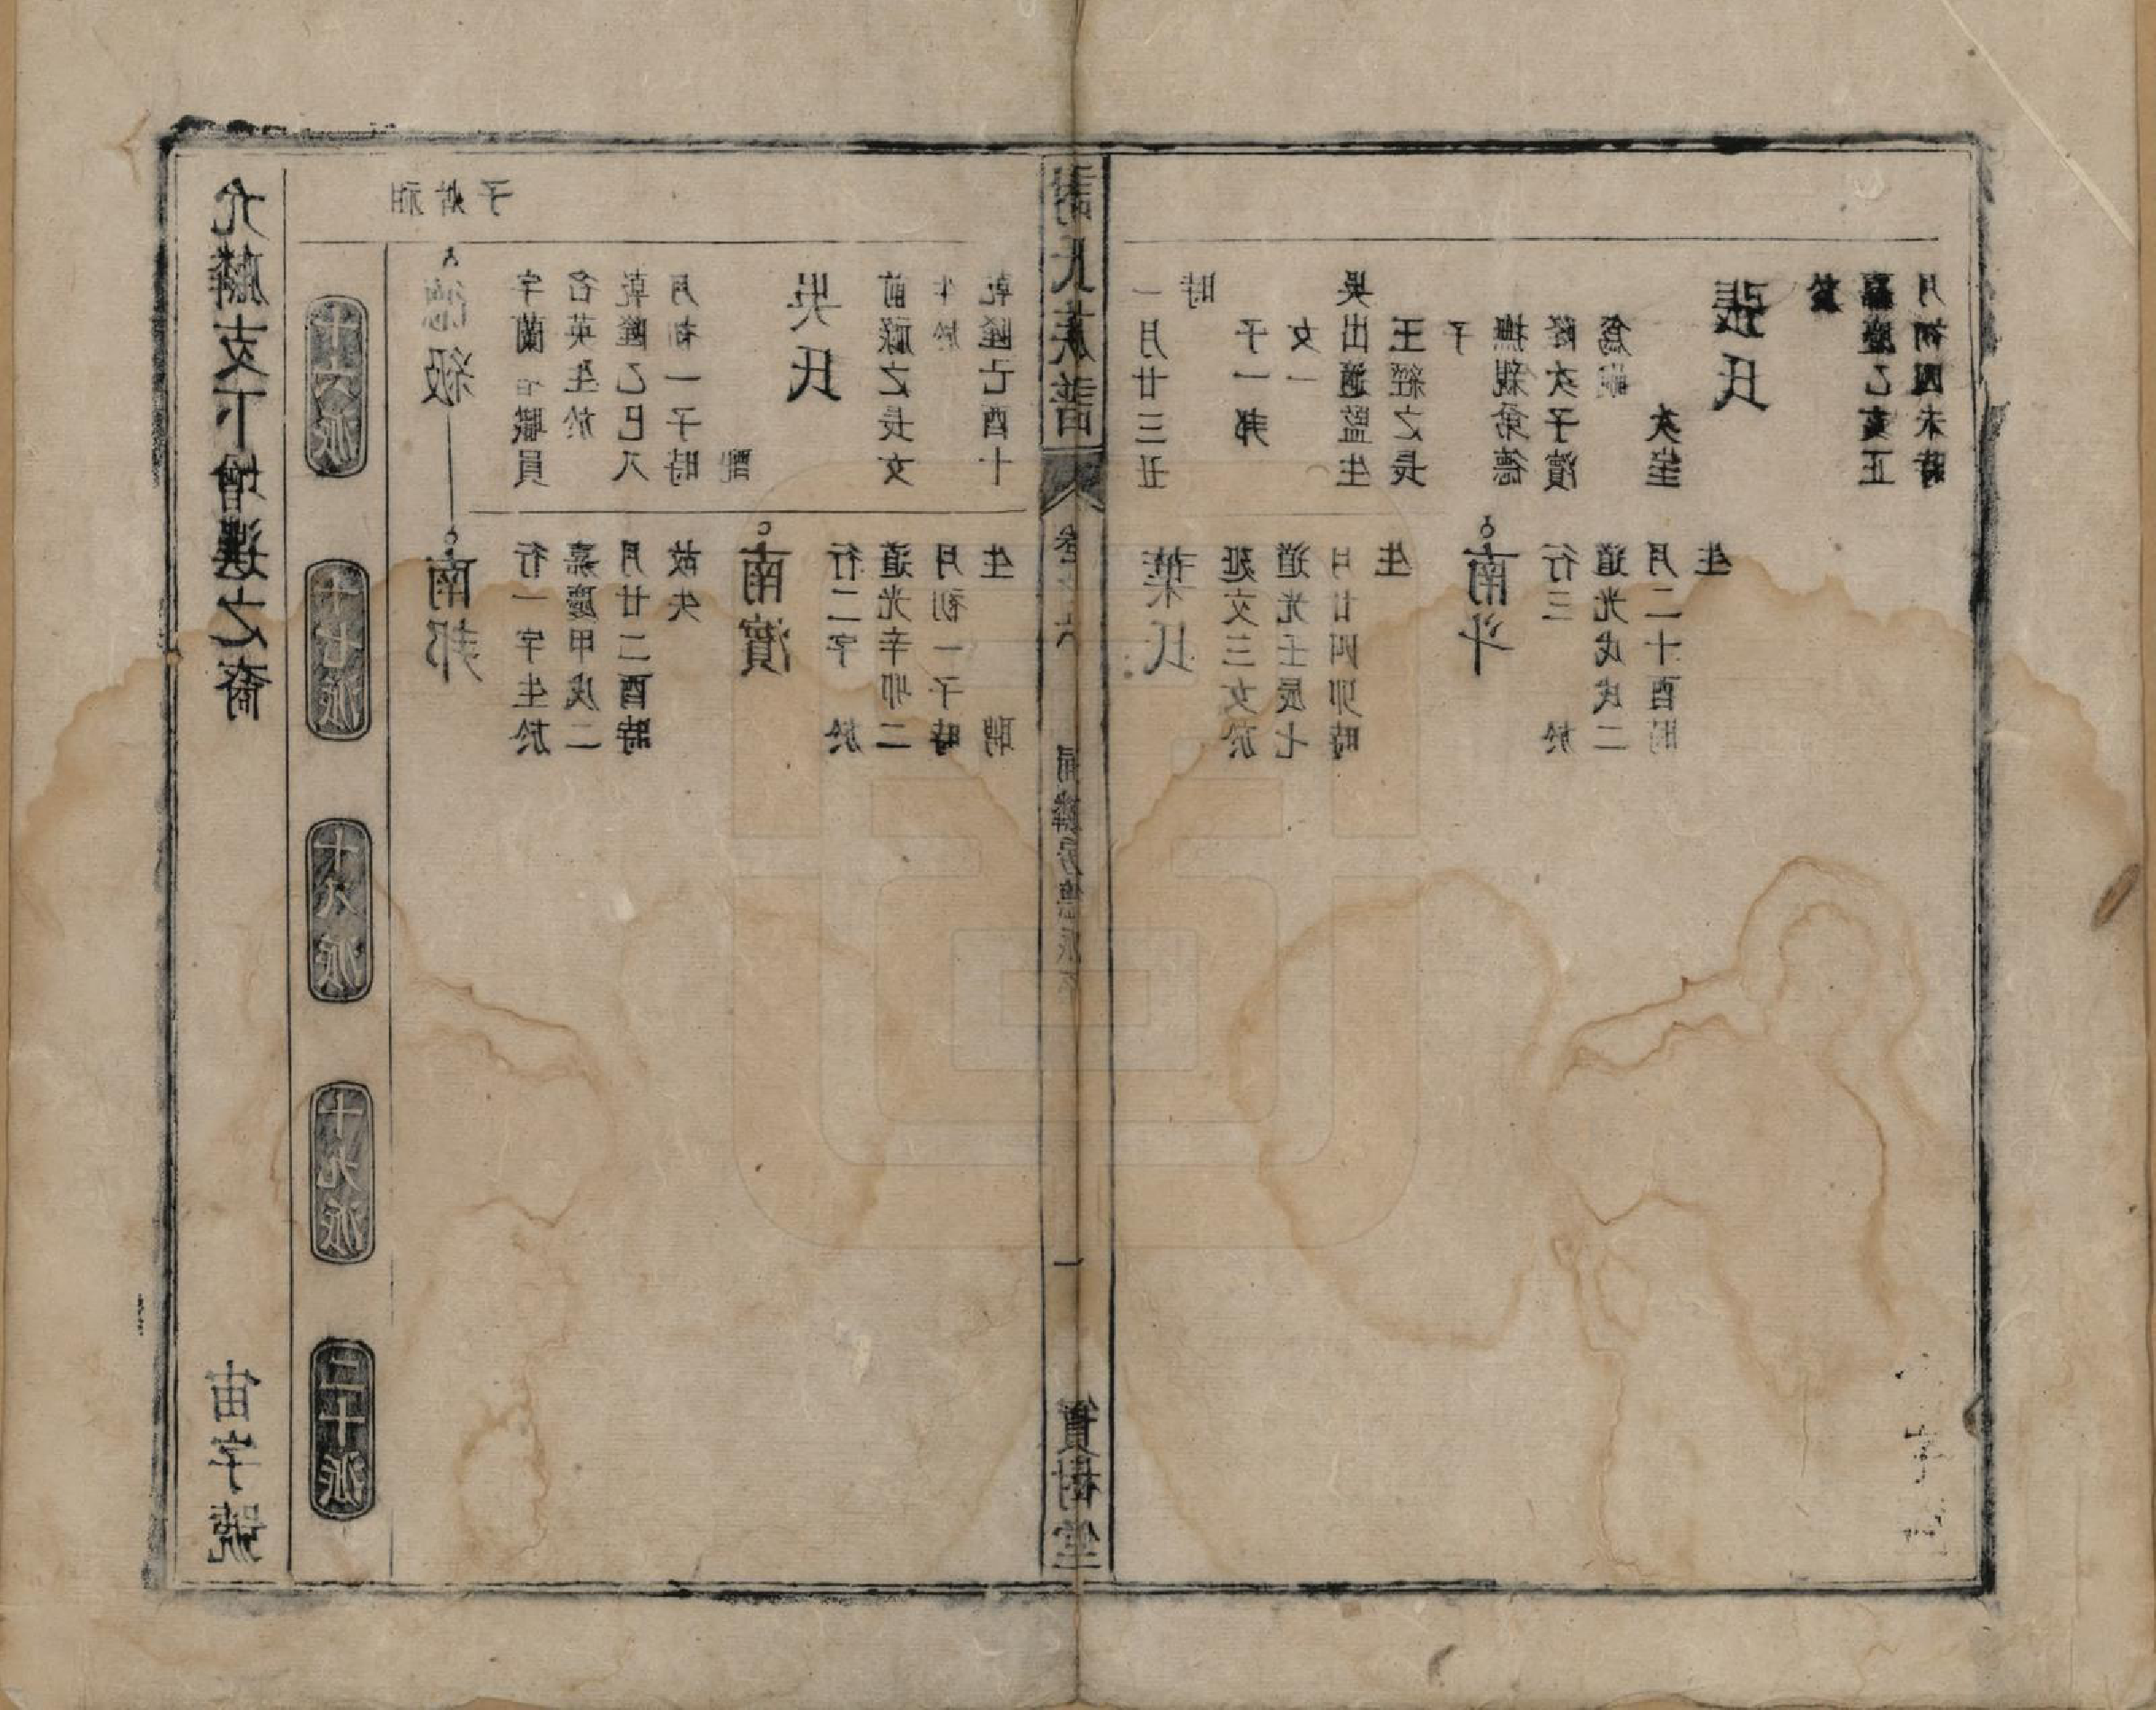 允麟支下增選之裔 宙字號
十六派
十七派
十八派
十九派
二十派
德級
字蘭石職員
名英生於
乾隆乙巳八
月初一子時
配
吳氏
前祿之長女
生於
乾隆己酉十
謝氏族譜 卷之六 一 寶樹堂
一月廿三丑
時
子一邦
女一
吳出適監生
王經之長
子
撫親弟德
隆次子濱
為嗣
次娶
張氏
於
嘉慶乙亥正
月初四未時
南邦
行一字生於
嘉慶甲戌二
月廿二酉時
故失
南濱
行二字 於
道光辛卯二
月初一子時
生 聘
葉氏
延文三女於
道光壬辰七
月廿四卯時
生
南斗
行三 於
道光戊戌二
月二十酉時
生